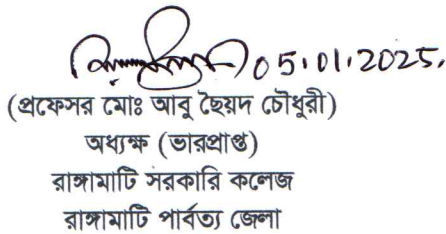 05.01.2025.
(প্রফেসর মোঃ আবু ছৈয়দ চৌধুরী)
অধ্যক্ষ (ভারপ্রাপ্ত)
রাঙ্গামাটি সরকারি কলেজ
রাঙ্গামাটি পার্বত্য জেলা